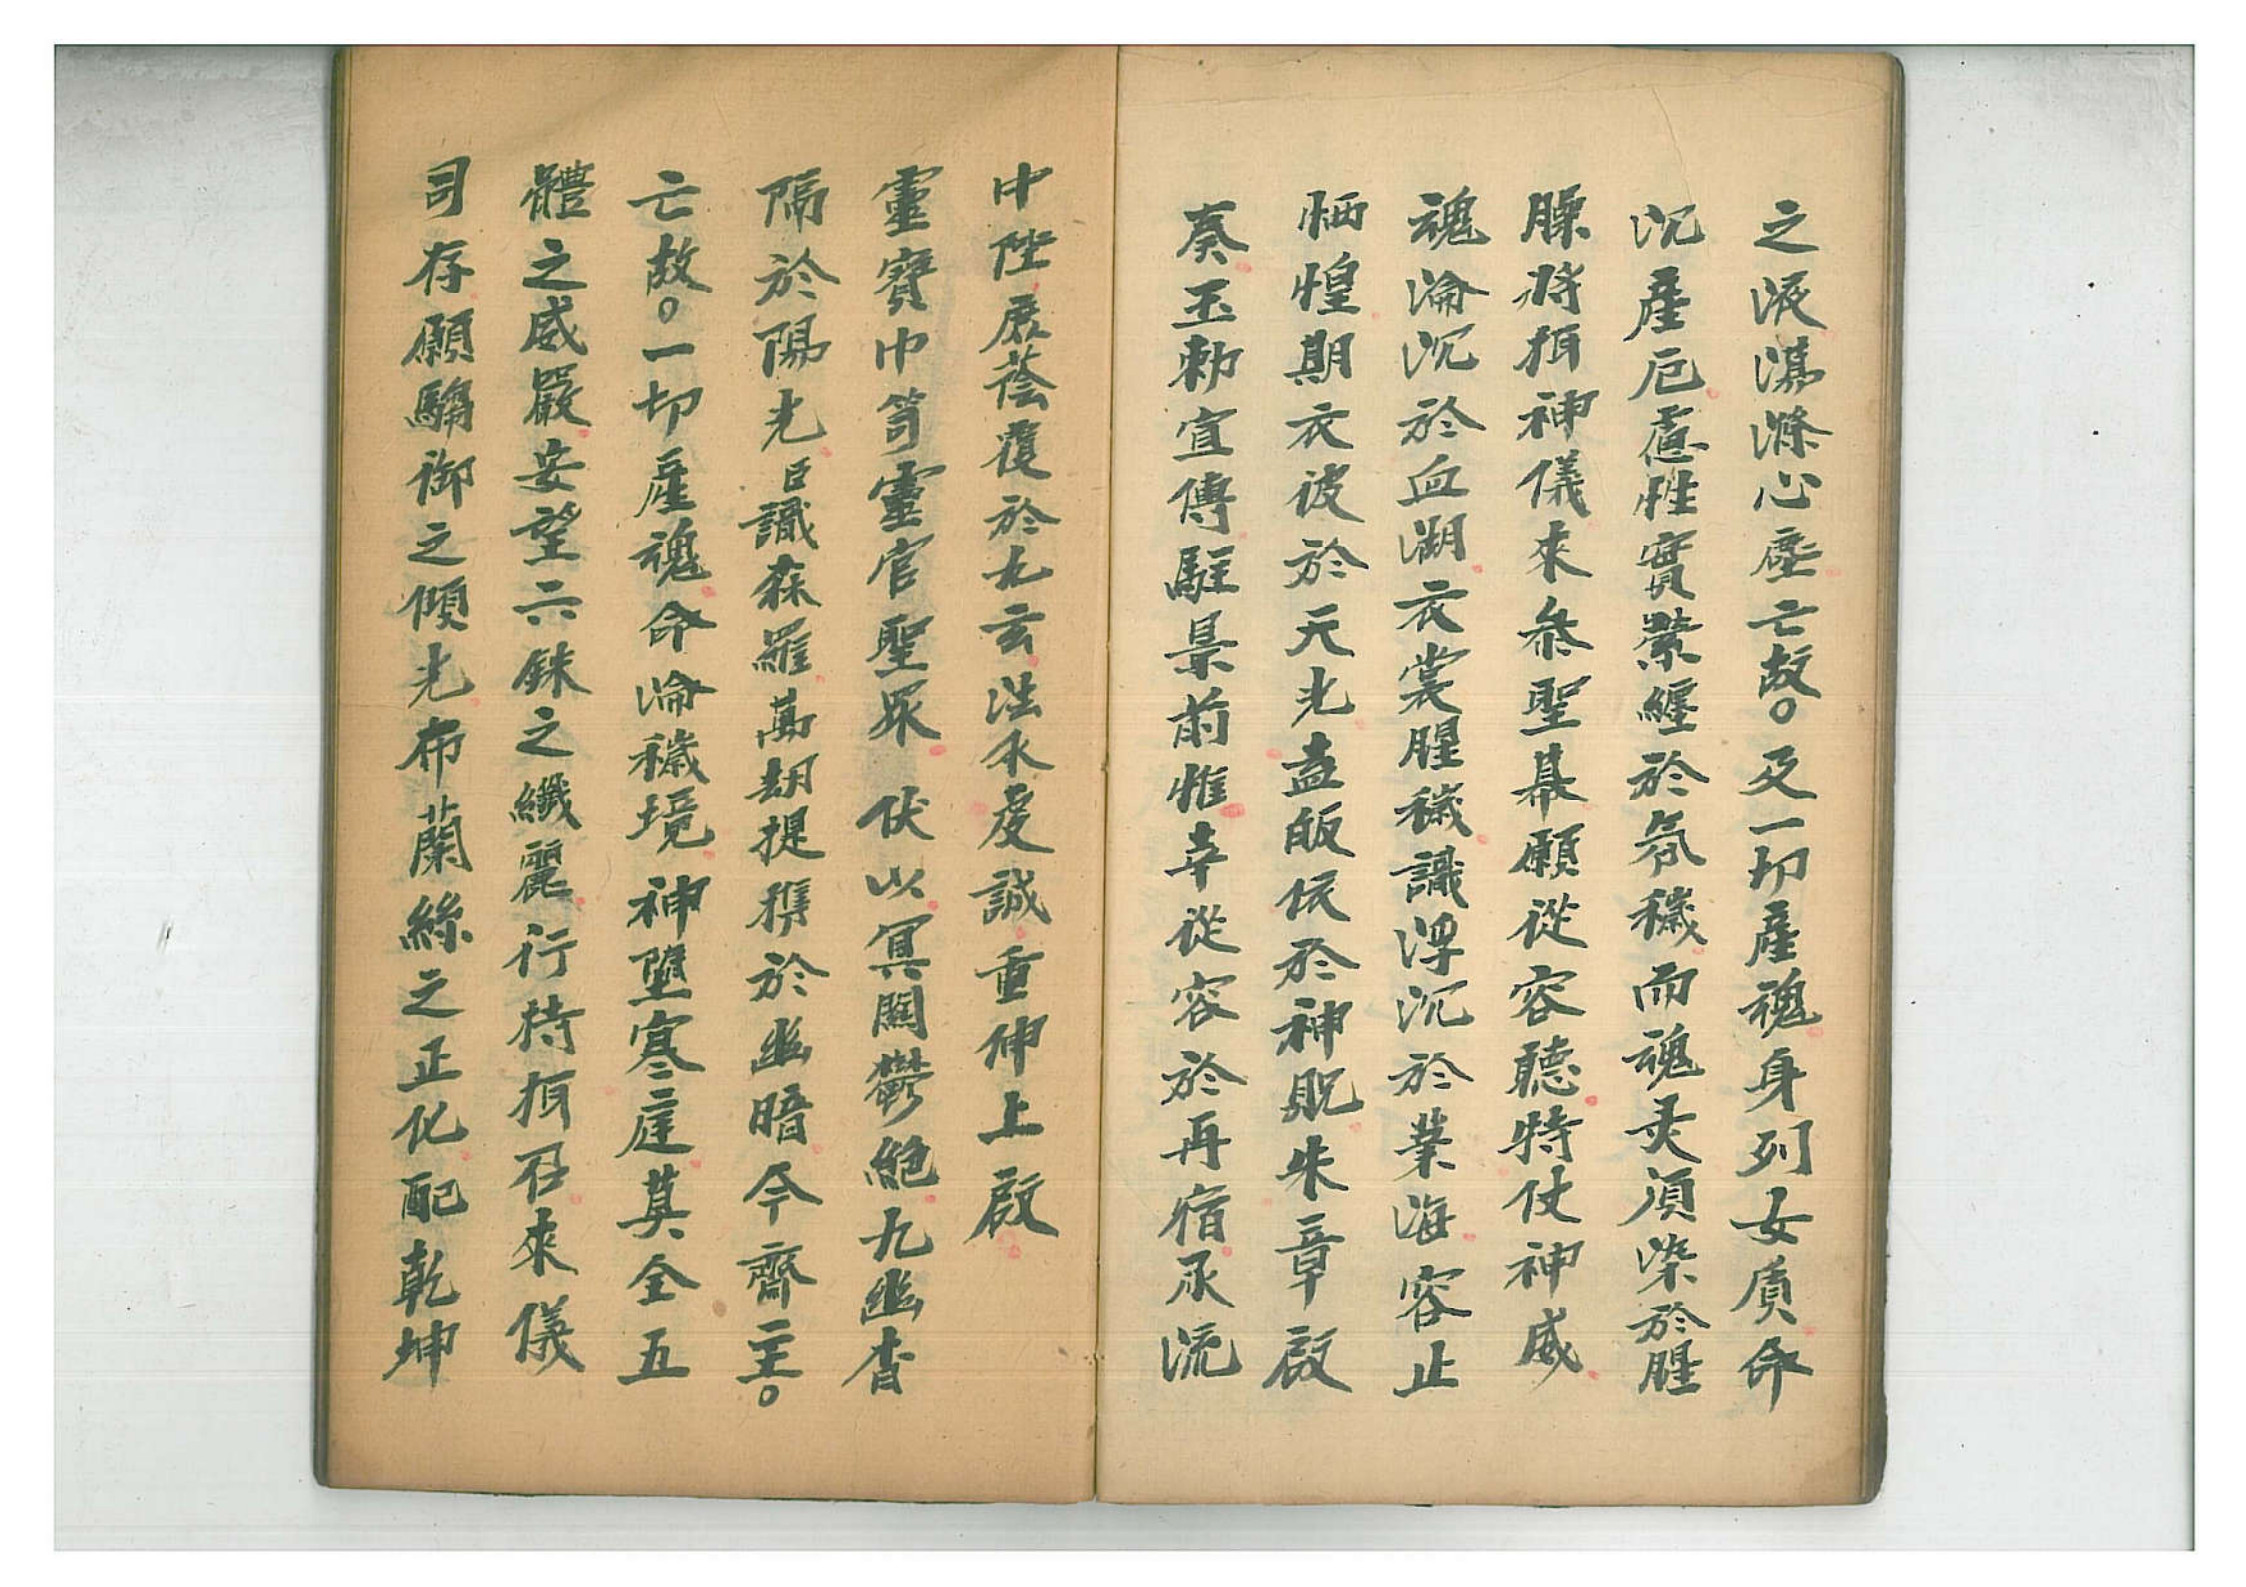 之液濯滌心塵亡故。及一切產魂身列女質命
沉產厄慮性實縈纏於氛穢而魂灵須染於腥
臊將措神儀來叅聖幕願從容聽特仗神威
魂淪沉於血湖衣裳腥穢識浮沉於業海容止
恓惶期衣彼於天光盍皈依於神貺朱章啟
奏玉勅宣傳駐景前惟幸從容於再宿承流
中陛展蔭覆於九玄法水虔誠重伸上啟
靈寶中笥靈官聖眾伏以冥關鬱絕九幽杳
隔於陽光臣識森羅萬刼提携於幽暗今齋主。
亡故。一切產魂命淪穢境神墮寒庭莫全五
體之威嚴安望六銖之纖麗行持栢召來儀
司存願驂御之傾光布蘭絲之正化配乾坤